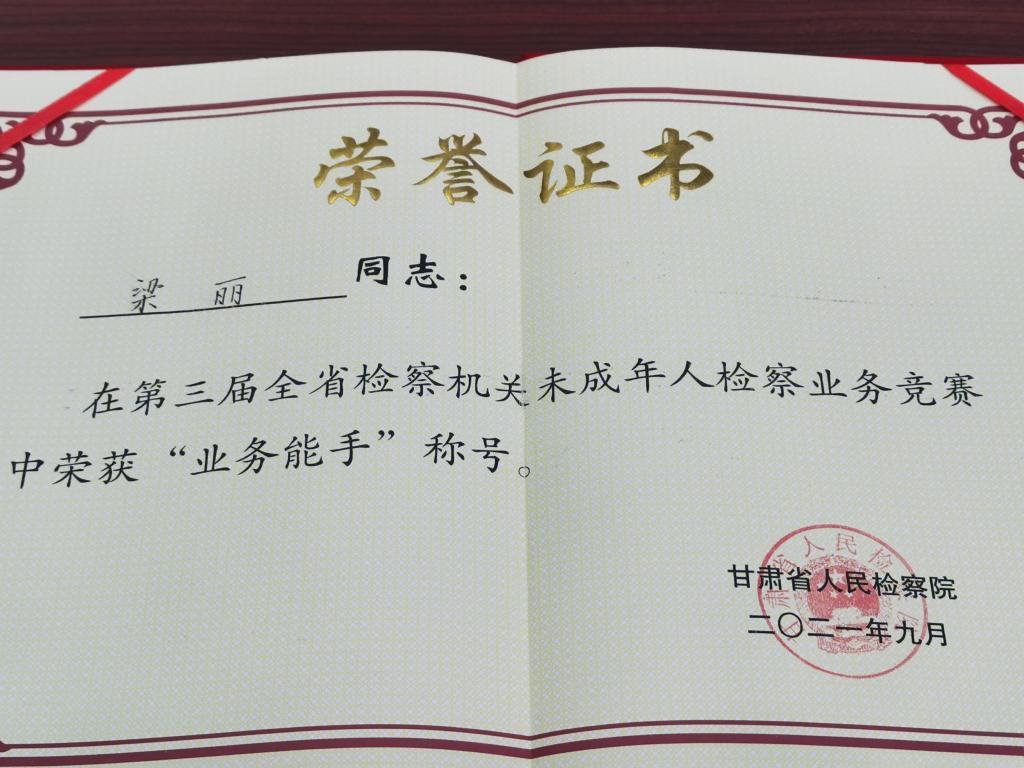 荣誉证书
梁丽同志：
在第三届全省检察机关未成年人检察业务竞赛
中荣获“业务能手”称号。
甘肃省人民检察院
二〇二一年九月